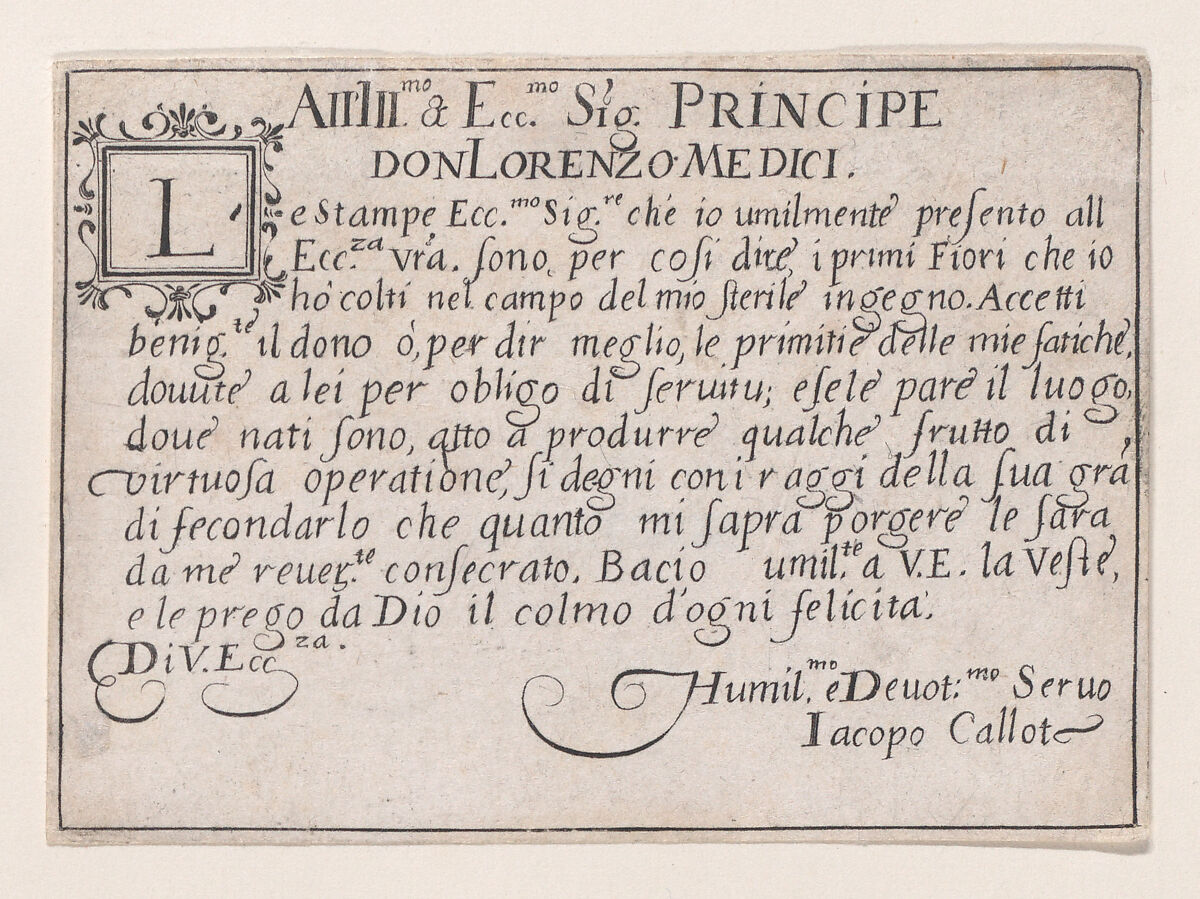 All'Ill.mo & Ecc.mo Sig. PRINCIPE
DON LORENZO MEDICI.
Le Stampe Ecc.mo Sig.re che io umilmente preſento all
Ecc.za vr̃a. ſono, per coſi dire, i primi Fiori che io
hò colti nel campo del mio ſterile ingegno. Accetti
benig.te il dono ò, per dir meglio, le primitie delle mie fatiche,
douute a lei per obligo di ſeruitu; e ſe le pare il luogo,
doue nati ſono, atto a produrre qualche frutto di
virtuoſa operatione, ſi degni con i raggi della ſua grã
di fecondarlo che quanto mi ſapra porgere le ſara
da me reuer.te conſecrato. Bacio umil.te a V.E. la Veſte,
e le prego da Dio il colmo d'ogni felicita.
Di V. Ecc.za.
Humil.mo e Deuot:mo Seruo
Iacopo Callot